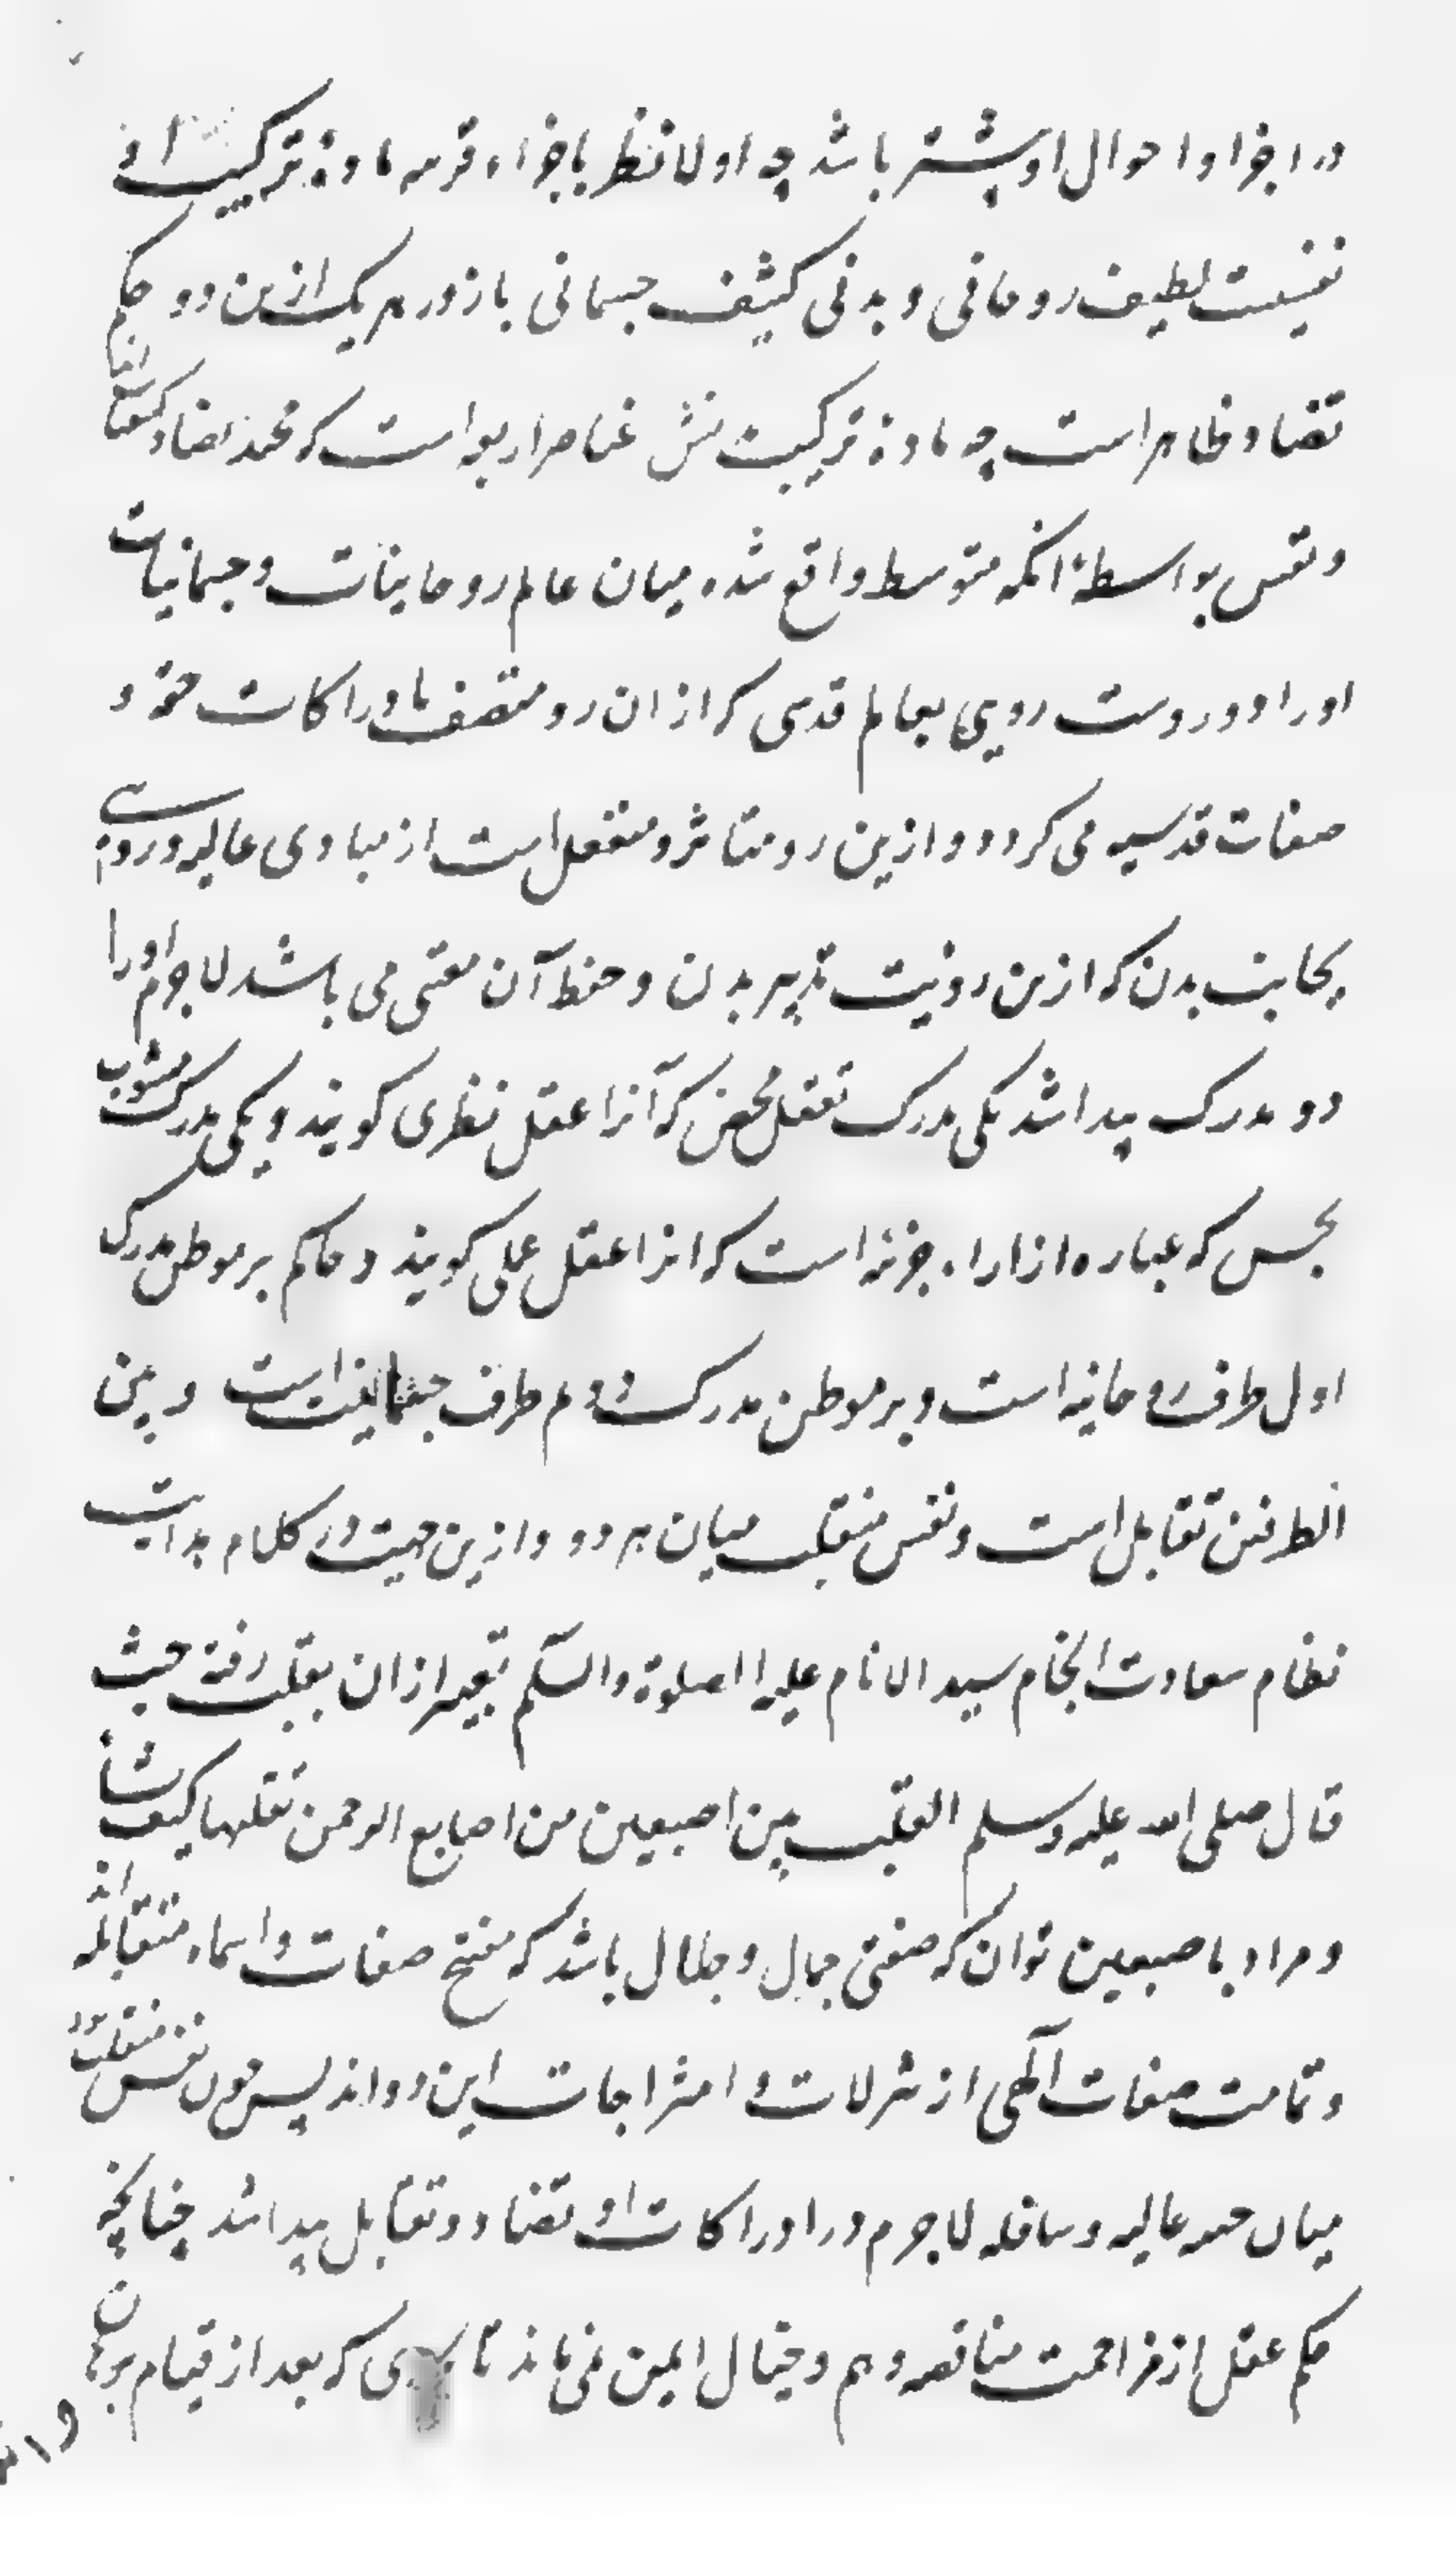 در اجزا و احوال او بیشتر باشد چه اولا نظر باجزاء قریبه مادهٔ ترکیب او
نفسیست لطیف روحانی و بدنی کثیف جسمانی باز در هر یک ازین دو حکم
تضاد ظاهر است چه مادهٔ ترکیب عناصر اربعه است که محمد تضاد
و نفس بواسطهٔ انکه متوسط واقع شده میان عالم روحانیات و جسمانیات
او را دو روست رویی بعالم قدسی که ازان رو متصف بادراکات حقه و
صفات قدسیه می کردد و ازین رو متاثر و منفعل است از مبادی عالیه و رویی
بجانب بدن که ازین رو نیت تدبیر بدن و حفظ آن معتنی می باشد لاجرم او را
دو مدرک پیدا شد یکی مدرک تعقل محض که آنرا عقل نظری کویند و یکی مدرک مشوب
بحس که عباره از اراء جزئیه است که انرا عقل عملی کویند و حاکم بر موطن مدرک
اول طرف روحانیه است و بر موطن مدرک دوم طرف جسمانیت است و بین
الطرفین تقابل است و نفس منقلب میان هر دو و ازین جهت در کلام هدایت
نظام سعادت انجام سید الانام علیه الصلوة والسلم تعبیر ازان بقلب رفته حیث
قال صلی الله علیه وسلم القلب بین اصبعین من اصابع الرحمن یقلبها کیف یشا
و مراد باصبعین توان که صفتی جمال و جلال باشد که مفتح صفات و اسماء متقابله اند
و تمامت صفات آلهی از تنزلات و امتزاجات این دو اند پس چون نفس منقلب
میان جنبه عالیه و سافله لاجرم در ادراکات او تضاد و تقابل پیدا شد چنانچه
حکم عقل از مزاحمت مناقضه وهم و خیال ایمن نمی ماند تا که بعد از قیام برهان